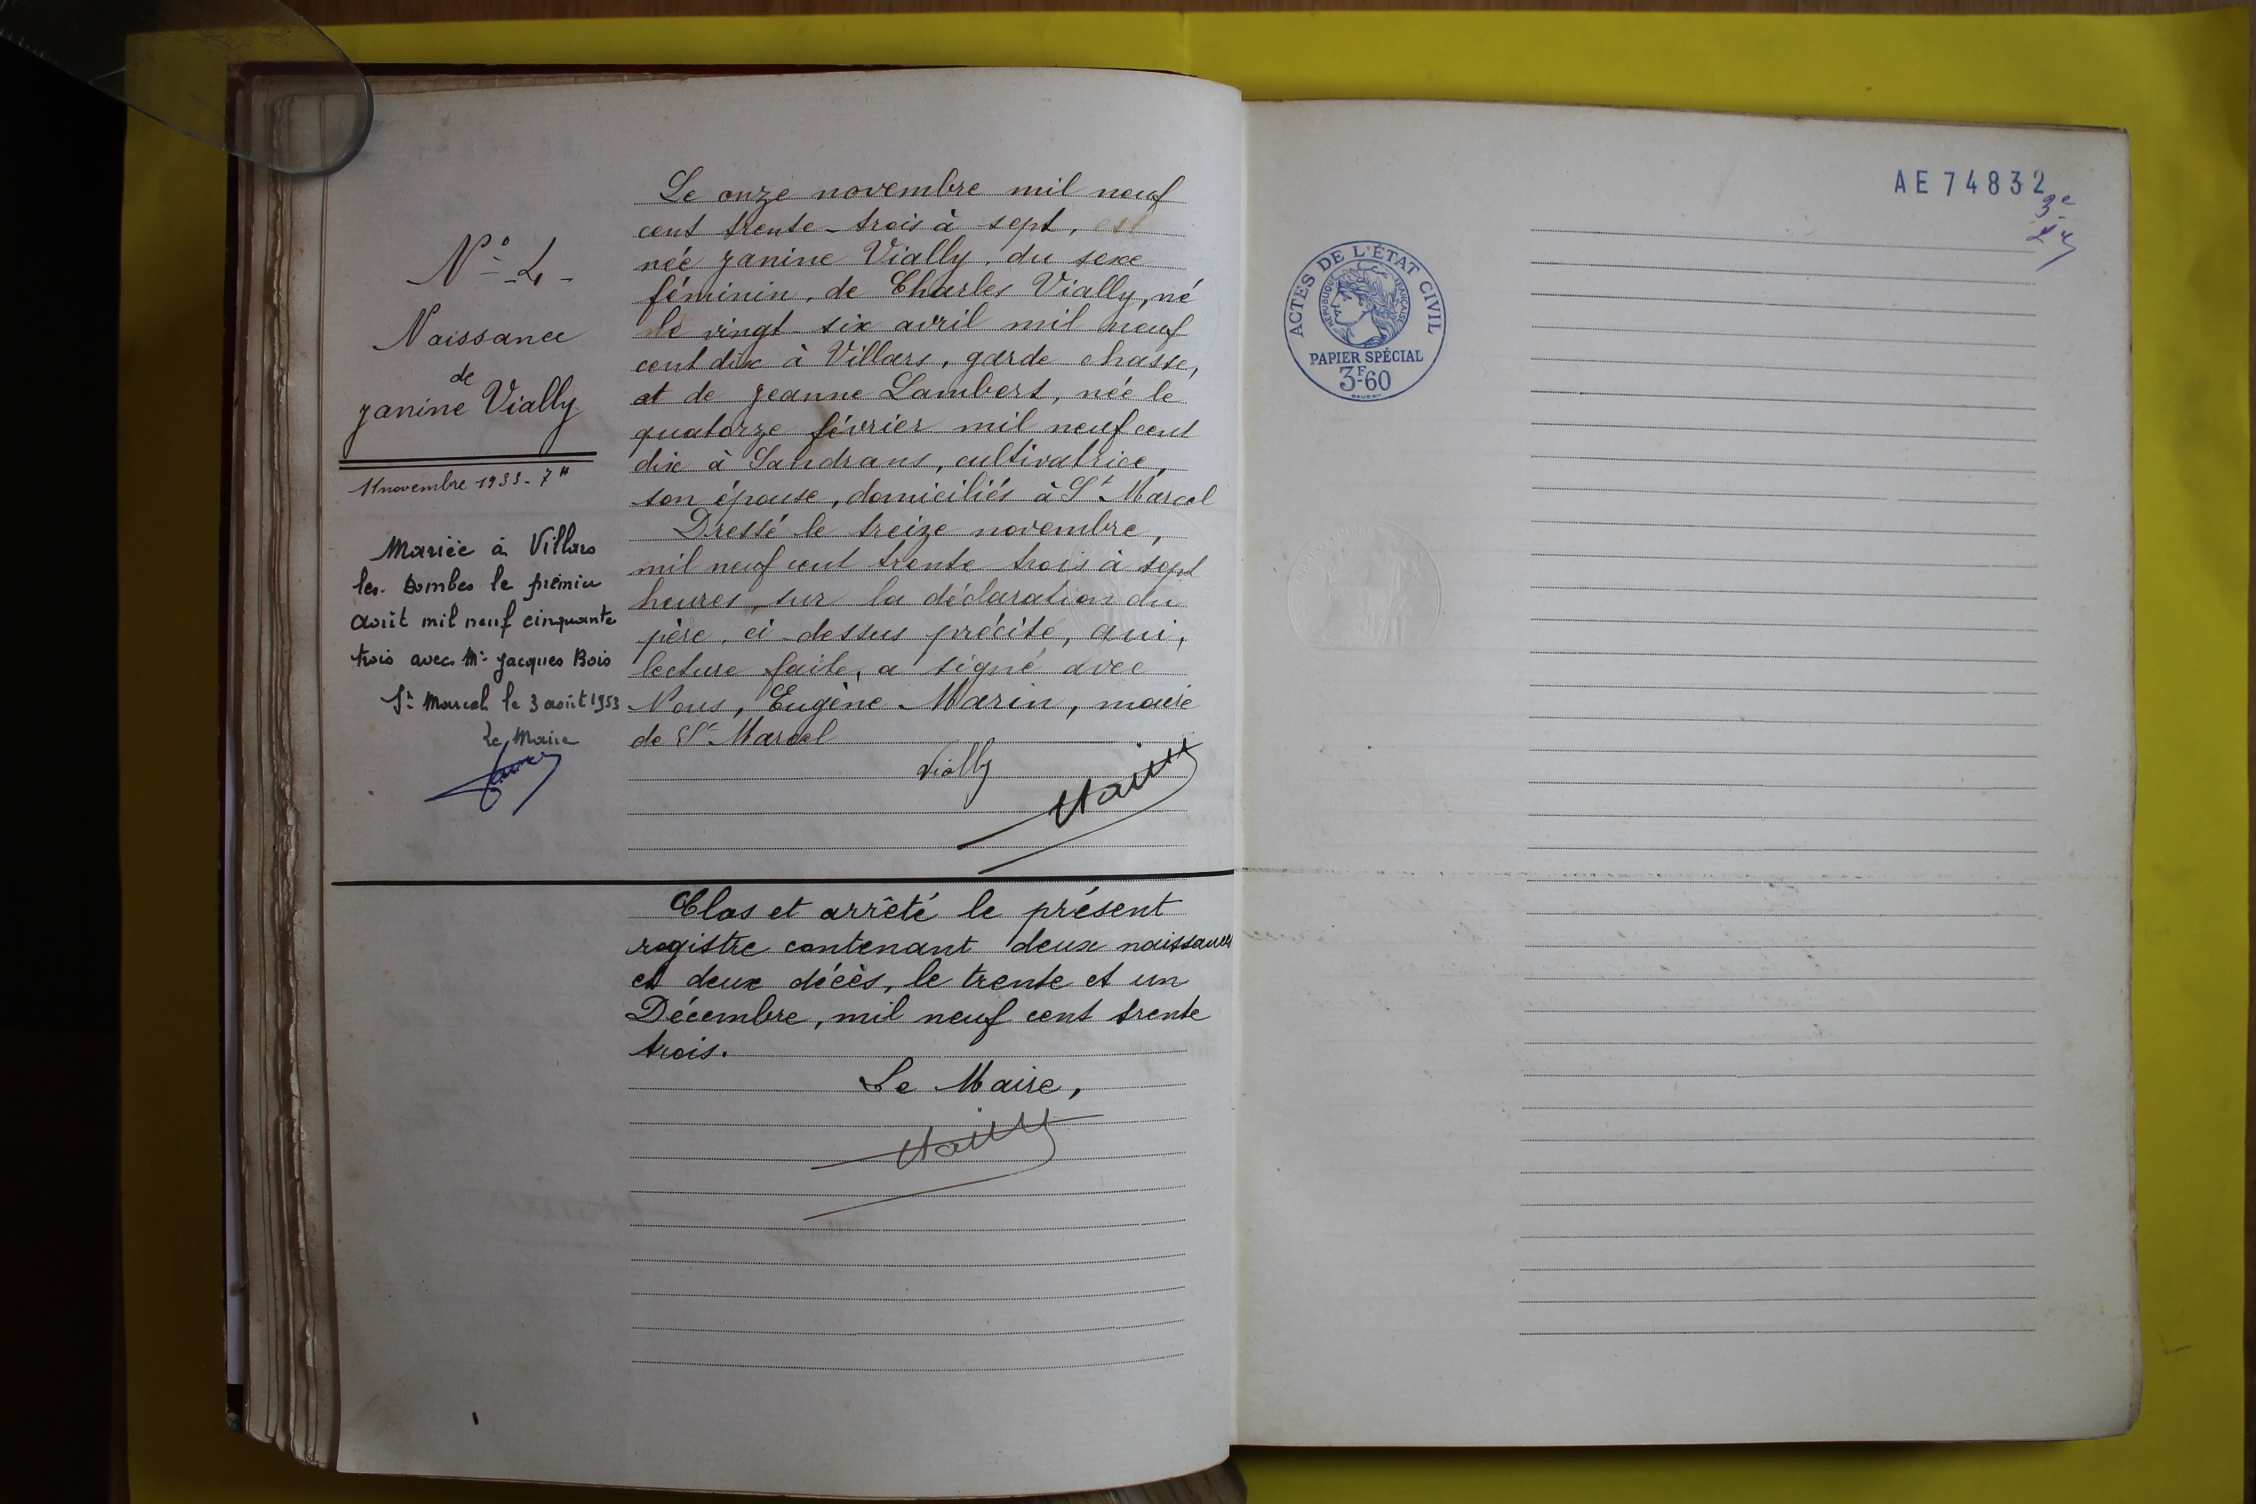 N° - 4 -
Naissance
de
Janine Vially
11 novembre 1933 - 7 H
Mariée à Villars
les Dombes le premier
août mil neuf cinquante
trois avec Mr Jacques Bois
St Marcel le 3 août 1953
Le Maire
Le onze novembre mil neuf
cent trente-trois à sept, est
née Janine Vially, du sexe
féminin, de Charles Vially, né
le vingt-six avril mil neuf
cent dix à Villars, garde chasse,
et de Jeanne Lambert, née le
quatorze février mil neuf cent
dix à Sandrans, cultivatrice,
son épouse, domiciliés à St Marcel
Dressé le treize novembre,
mil neuf cent trente trois à sept
heures, sur la déclaration du
père, ci-dessus précité, qui,
lecture faite, a signé avec
Nous, Eugène Marin, maire
de St Marcel
Vially
Marin
Clos et arrêté le présent
registre contenant deux naissances
et deux décès, le trente et un
Décembre, mil neuf cent trente
trois.
Le Maire,
Marin
AE 74832
ACTES DE L'ÉTAT CIVIL
RÉPUBLIQUE FRANÇAISE
PAPIER SPÉCIAL
3F60